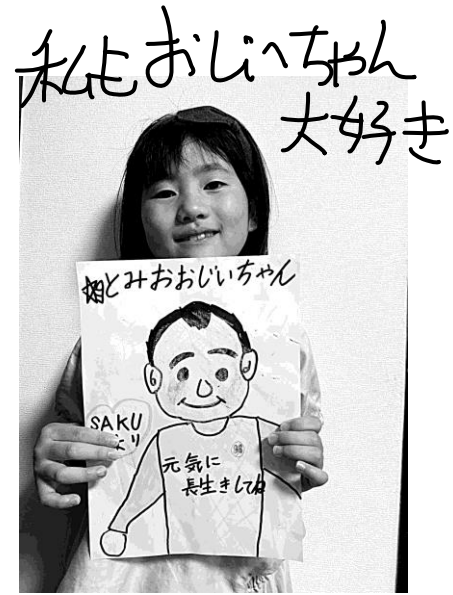 私もおじいちゃん
大好き
とみおおじいちゃん
SAKU
より
元気に
長生きしてね